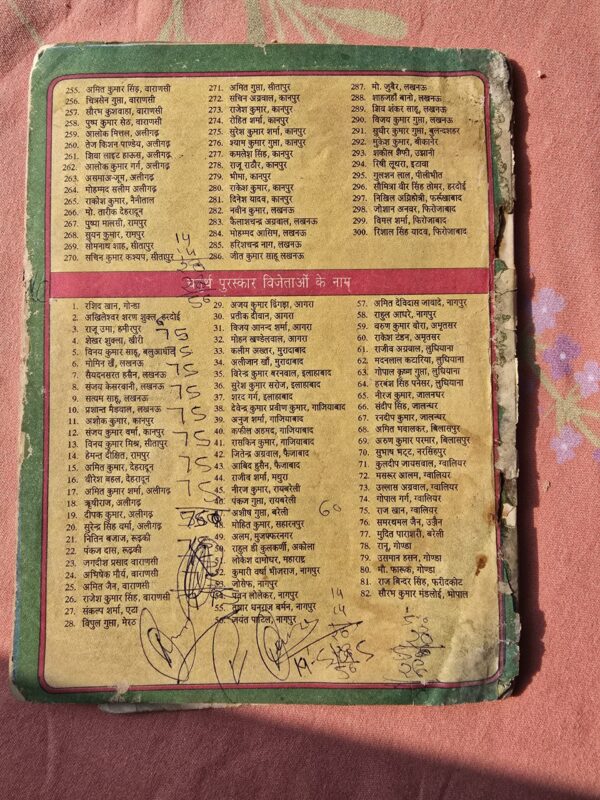 255. अमित कुमार सिंह, वाराणसी
256. चित्रसेन गुप्ता, वाराणसी
257. सौरभ कुशवाहा, वाराणसी
258. पुष्प कुमार सेठ, वाराणसी
259. आलोक मित्तल, अलीगढ़
260. तेज किशन पाण्डेय, अलीगढ़
261. शिवा लाइट हाऊस, अलीगढ़
262. आलोक कुमार गर्ग, अलीगढ़
263. अलीगढ़
264. मोहम्मद सलीम अलीगढ़
265. राकोश कुमार, नैनीताल
266. मो. तारीक देहरादून
267. पुष्पा मालसी, रामपुर
268. सुमन कुमार, रामपुर
269. सोमनाथ शाह, सीतापुर
270. सचिन कुमार कश्यप, सीतापुर
271. अमित गुप्ता, सीतापुर
272. सचिन अग्रवाल, कानपुर
273. राजेश कुमार, कानपुर
274. रोहित शर्मा, कानपुर
275. सुरेश कुमार शर्मा, कानपुर
276. श्याम कुमार गुप्ता, कानपुर
277. कमलेश सिंह, कानपुर
278. राजू राठौर, कानपुर
279. भीमा, कानपुर
280. राकेश कुमार, कानपुर
281. दिनेश यादव, कानपुर
282. नवीन कुमार, लखनऊ
283. कैलाशचन्द्र अग्रवाल, लखनऊ
284. मोहम्मद आसिम, लखनऊ
285. हरिशचन्द्र नाग, लखनऊ
286. जीत कुमार साहू लखनऊ
287. मो. जुबैर, लखनऊ
288. शाहजहाँ बानो, लखनऊ
289. शिव शंकर साहू, लखनऊ
290. विजय कुमार गुप्ता, लखनऊ
291. सुधीर कुमार गुप्ता, बुलन्दशहर
292. मुकेश कुमार, बीकानेर
293. शकील शैफी, उझानी
294. रिषी लूथरा, इटावा
295. गुलशन लाल, पीलीभीत
296. सौमित्रा वीर सिंह तोमर, हरदोई
297. निखिल अग्निहोत्री, फर्रूखाबाद
298. जीशान अनवर, फिरोजाबाद
299. विमल शर्मा, फिरोजाबाद
300. रिशाल सिंह यादव, फिरोजाबाद
14
पुरस्कार विजेताओं के नाम
1. रशिद खान, गोन्डा
2. अखिलेश्वर शरण शुक्ल, हरदोई
3. राजू उमा, हमीरपुर
4. शेखर शुक्ला, खीरी
5. विनय कुमार साहू,
6. मोमिन खाँ, लखनऊ
7. सैयदनसरत हसैन, लखनऊ
8. संजय केसरवानी, लखनऊ
9. सत्यम साहू, लखनऊ
10. प्रशान्त मैडयाल, लखनऊ
11. अशोक कुमार, कानपुर
12. संजय कुमार वर्मा, कानपुर
13. विनय कुमार मिश्र, सीतापुर
14. हेमन्त दीक्षित, रामपुर
15. अमित कुमार, देहरादून
16. वीरेश बहल, देहरादून
17. अमित कुमार शर्मा, अलीगढ़
18. ऋषीराज, अलीगढ़
19. दीपक कुमार, अलीगढ़
20. सुरेन्द्र सिंह वर्मा, अलीगढ़
21. नितिन बजाज, रूढ़की
22. पंकज दास, रूढ़की
23. जगदीश प्रसाद वाराणसी
24. अभिषेक मौर्य, वाराणसी
25. अमित जैन, वाराणसी
26. राजेश कुमार सिंह, वाराणसी
27. संकल्प शर्मा, एटा
28. विपुल गुप्ता, मेरठ
75
75
75
75
75
75
75
29. अजय कुमार ढिंगड़ा, आगरा
30. प्रतीक दीवान, आगरा
31. विजय आनन्द शर्मा, आगरा
32. मोहन खण्डेलवाल, आगरा
33. कलीम अख्तर, मुरादाबाद
34. अलीजान खाँ, मुरादाबाद
35. विरेन्द्र कुमार बरनवाल, इलाहाबाद
36. सुरेश कुमार सरोज, इलाहाबाद
37. शरद गर्ग, इलाहाबाद
38. देवेन्द्र कुमार प्रवीण कुमार, गाजियाबाद
39. अनुज शर्मा, गाजियाबाद
40. कफील अहमद, गाजियाबाद
41. रासकिन कुमार, गाजियाबाद
42. जितेन्द्र अग्रवाल, फैजाबाद
43. आबिद हुसैन, फैजाबाद
44. राजीव शर्मा, मथुरा
45. नीरज कुमार, रायबरेली
पंकज गुप्ता, रायबरेली
अशीष गुप्ता, बरेली
48. मोहित कुमार, सहारनपुर
49. अलम, मुजफ्फरनगर
50. राहुल डी कुलकर्णी, अकोला
51. लोकेश दामोधर, महाराष्ट्र
52. कुमारी वर्षा भीजराज, नागपुर
53. जोसेफ, नागपुर
लोलेकर, नागपुर
55. तुषार धनराज बर्मन, नागपुर
जयंत पाटिल, नागपुर
60
14
14
57. अमित देविदास जावादे, नागपुर
58. राहुल आधरे, नागपुर
59. वरुण कुमार वोरा, अमृतसर
60. राकेश टंडन, अमृतसर
61. राजीव अग्रवाल, लुधियाना
62. मदनलाल कटारिया, लुधियाना
63. गोपाल कृष्ण गुप्ता, लुधियाना
64. हरबंश सिंह पनेसर, लुधियाना
65. नीरज कुमार, जालन्धर
66. संदीप सिंह, जालन्धर
67. रनदीप कुमार, जालन्धर
68. अमित भवालकर, बिलासपुर
69. अरुण कुमार परमार, बिलासपुर
70. सुभाष भट्ट, नरसिंहपुर
71. कुलदीप जायसवाल, ग्वालियर
72. मसरूर आलम, ग्वालियर
73. उल्लास अग्रवाल, ग्वालियर
74. गोपाल गर्ग, ग्वालियर
75. राज खान, ग्वालियर
76. समरथमल जैन, उज्जैन
77. मुदित पाराशरी, बरेली
78. रानू, गोण्डा
79. उसमान हसन, गोण्डा
80. मौ. फारूक, गोण्डा
81. राज बिन्दर सिंह, फरीदकोट
82. सौरभ कुमार मंडलोई, भोपाल